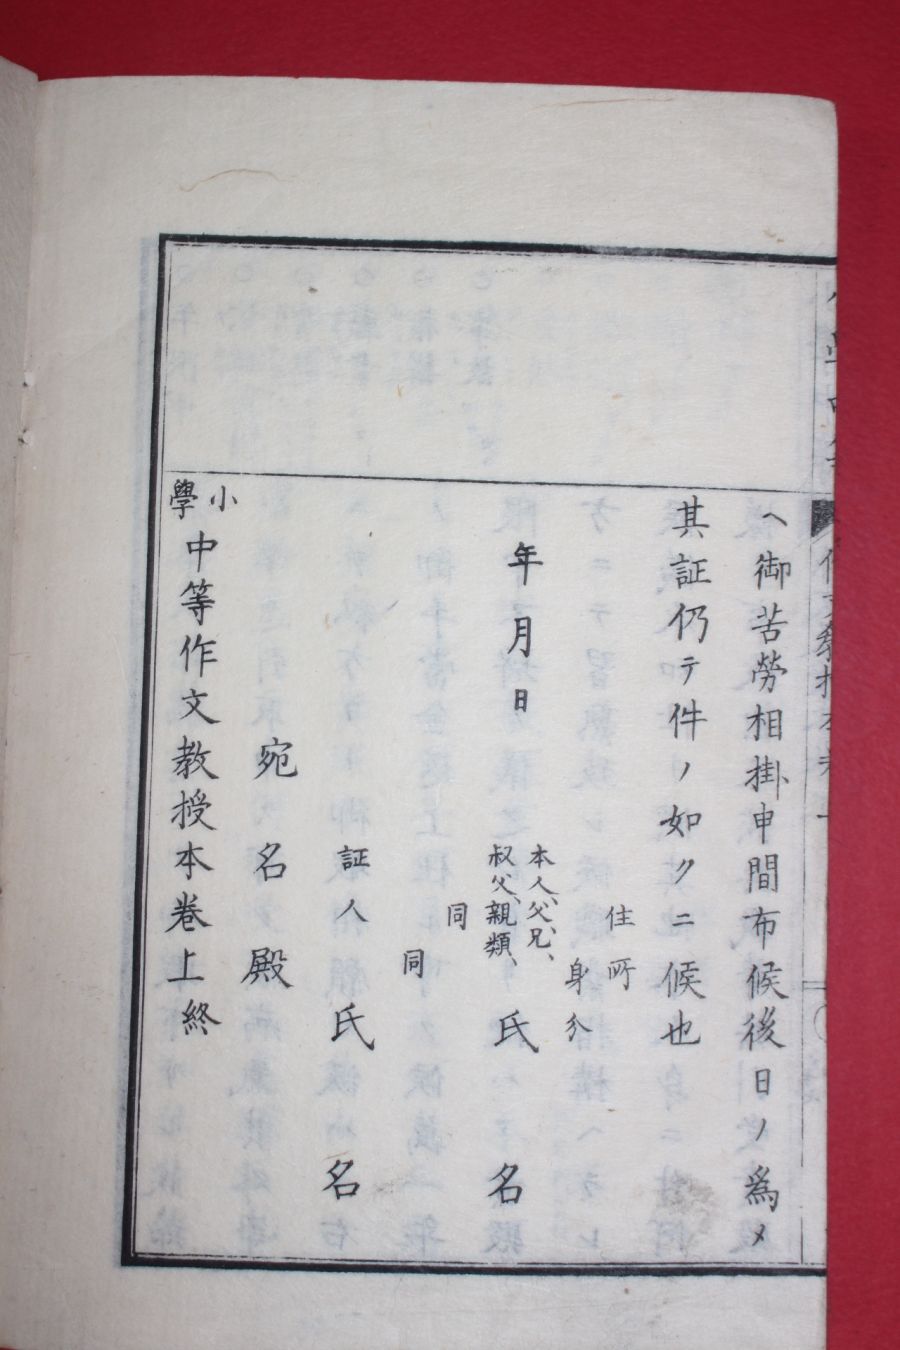 へ御苦勞相掛申間布候後日ノ爲メ
其証仍テ件ノ如クニ候也
住所
身分
年月日
本人、父、兄、
叔父、親類、
氏名
同
同
証人氏名
宛名殿
小學中等作文教授本卷上終